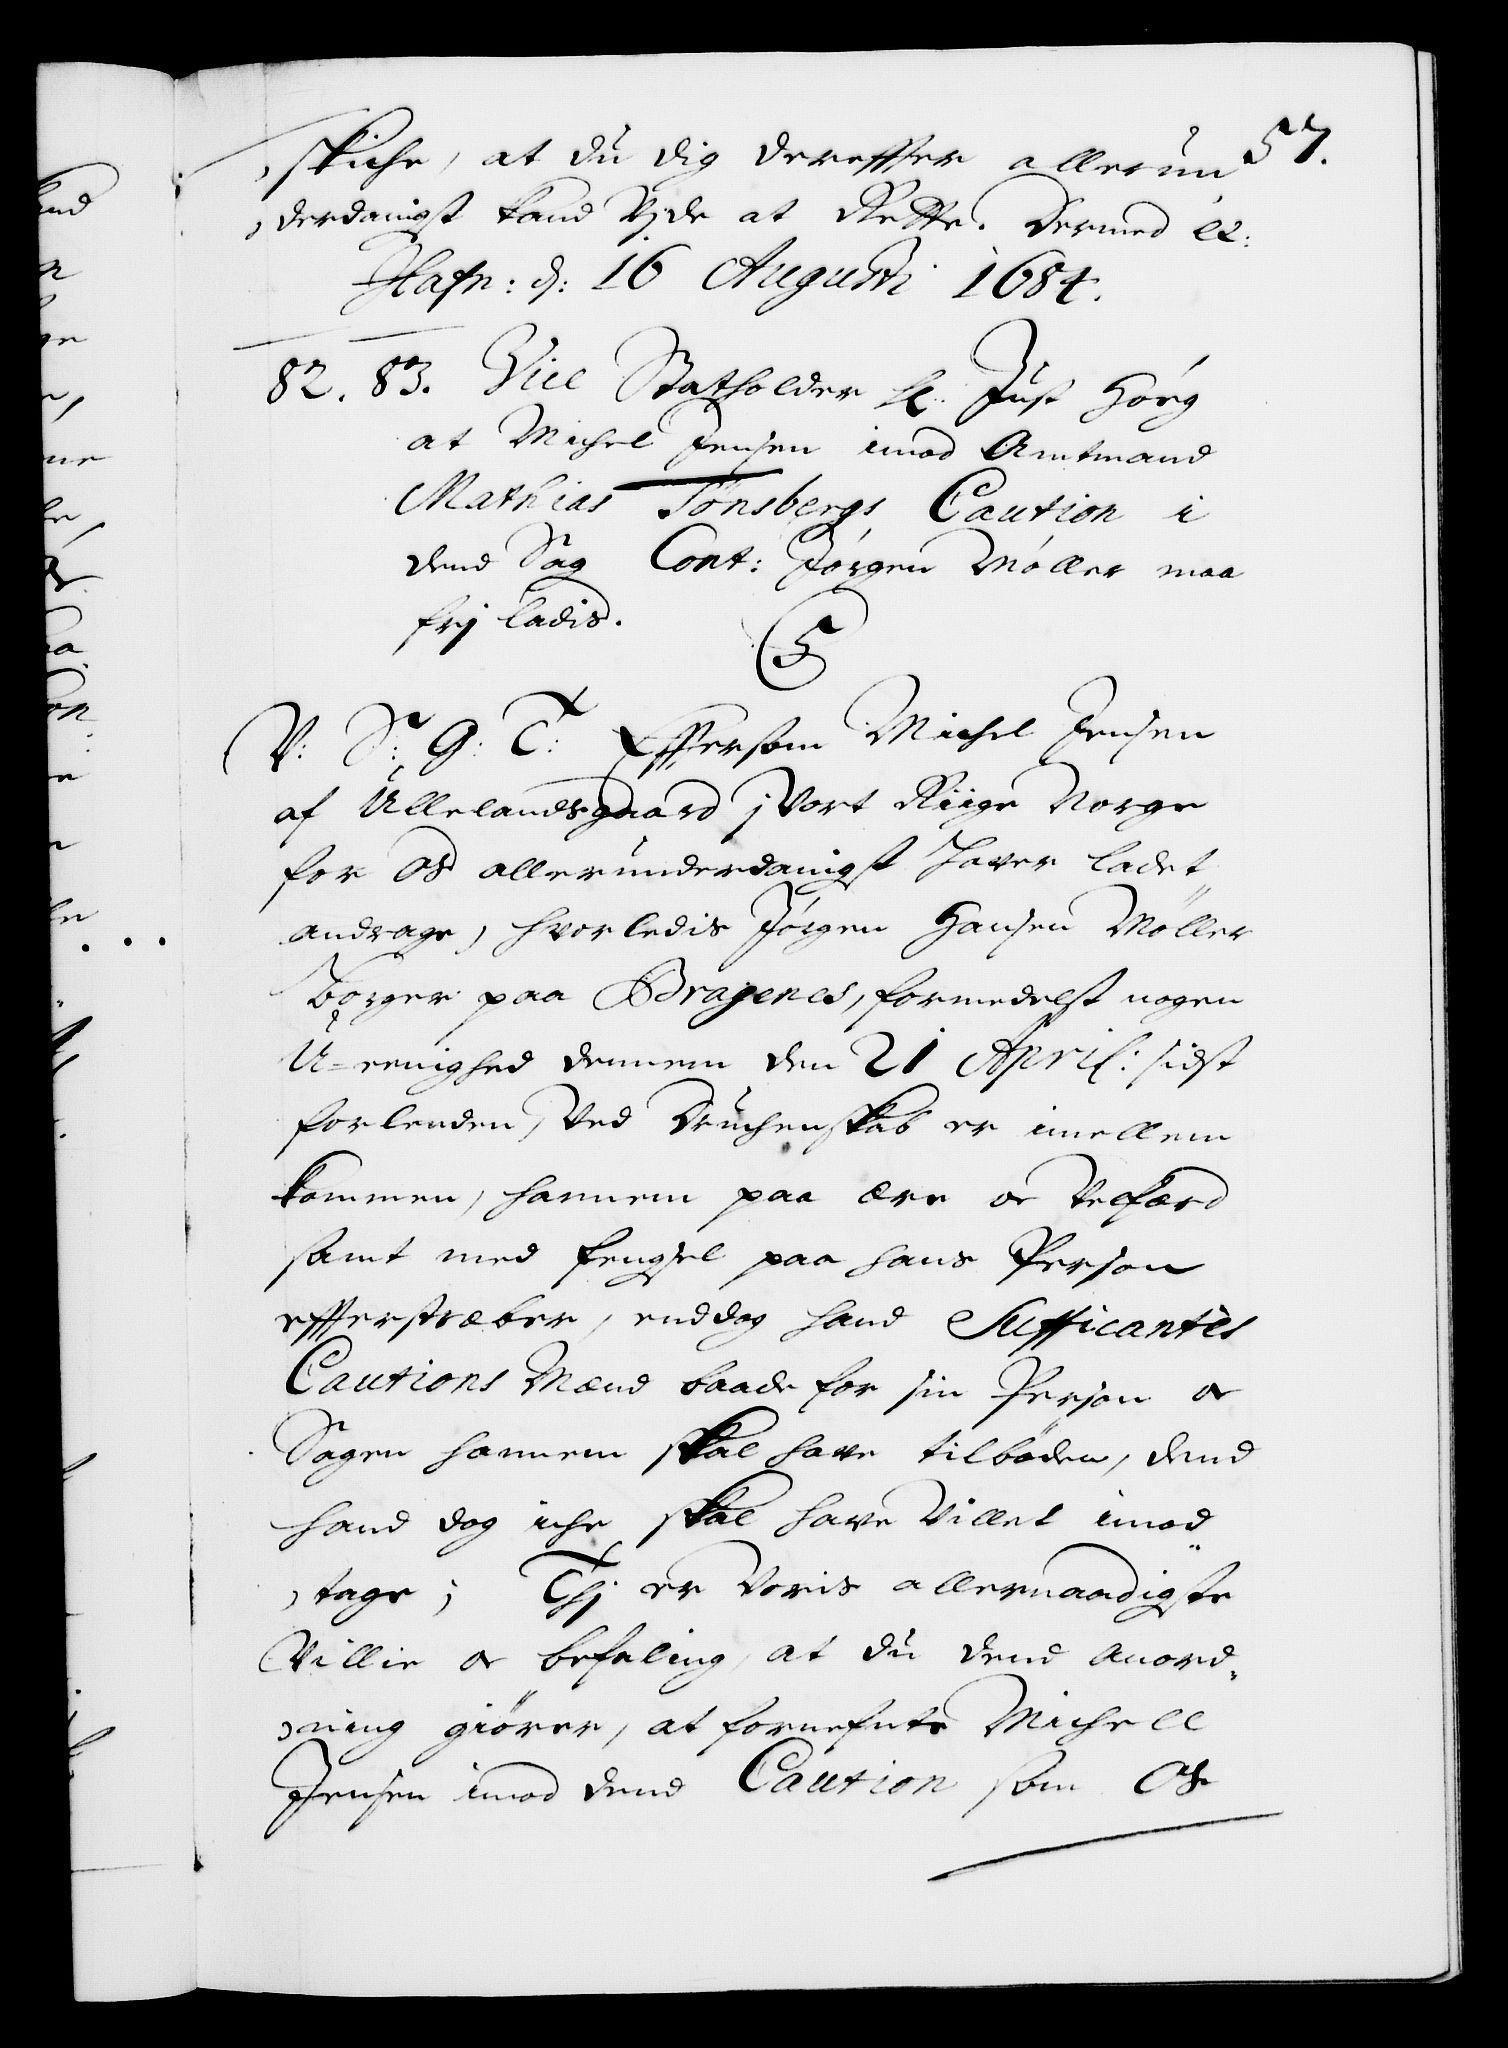 57.
skiche, at du dig derefter allerun
derdanigst kand vjde at Rette. Dermed ec:
Hafn: d: 16 Augusti 1684.
82. 83. Vice Statholder H: Just Høeg
at Michel Jensen imod Amtmand
Mathias Tønsbergs Caution i
dend Sag Cont: Jørgen Møller maa
frj ladis.
C5
V: S: G: T: Eftersom Michel Jensen
af Ullelandsgaard j Vort Riige Norge
for Os allerunderdanigst haver ladet
andrage, hvorledis Jørgen Hansen Møller
Borger paa Bragenes, formedelst nogen
U-eenighed dennem den 21 April: sidst
forleden, Ved Druchenskab er imellem
kommen, hannem paa ære oc Velfærd
samt med fengsel paa hans Person
efterstræber, enddog hand Sufficantes
Cautions Mænd baade for sin Person oc
Sagen hannem skal have tilböden, dend
hand dog iche skal have Villet imod
tage; Thj er Voris allernaadigste
Villie oc befaling, at du dend anord„
ning giörer, at fornefnte Michell
Jensen imod dend Caution som Os